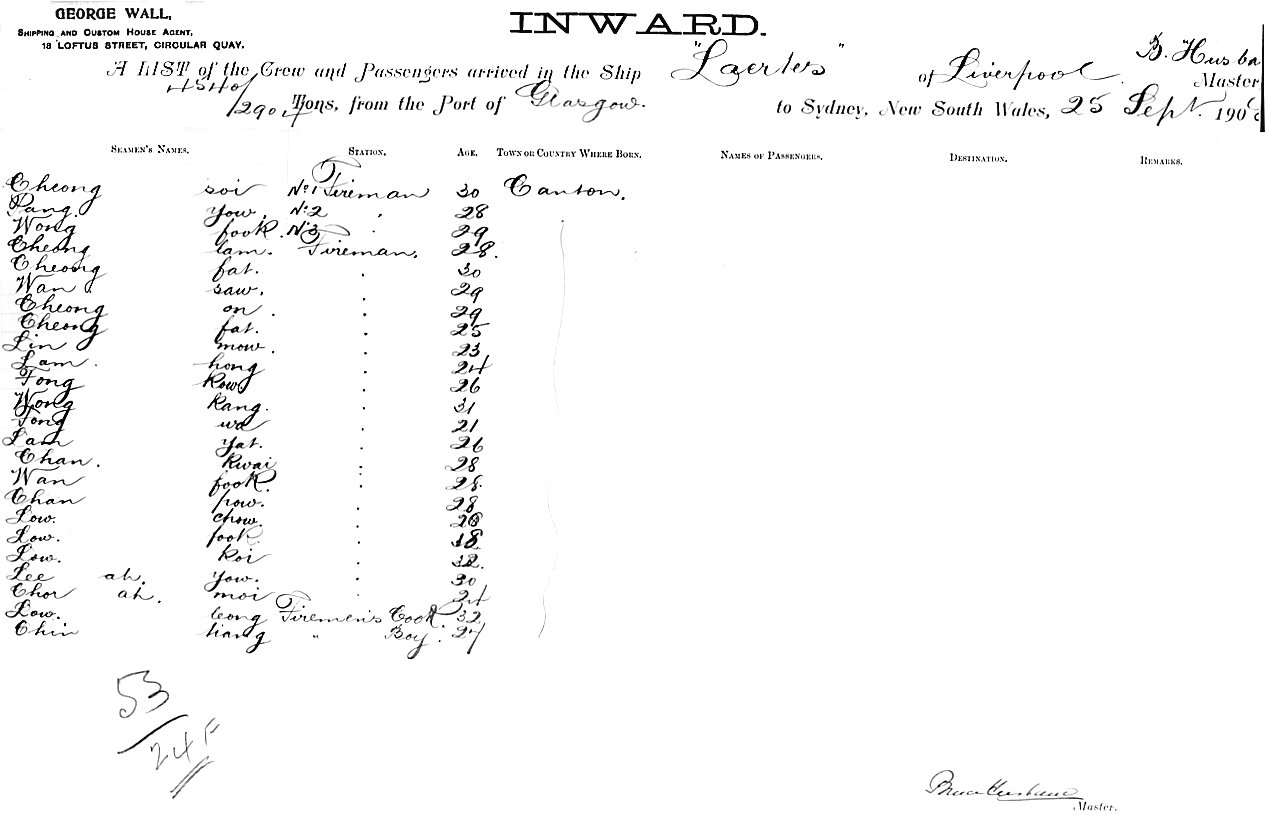 GEORGE WALL,
SHIPPING AND CUSTOM HOUSE AGENT,
18 LOFTUS STREET, CIRCULAR QUAY.
INWARD.
A LIST of the Crew and Passengers arrived in the Ship "Laertes" of Liverpool B. Husba Master
4540/2904 Tons, from the Port of Glasgow. to Sydney, New South Wales, 25 Sept. 190
SEAMEN'S NAMES. STATION. AGE. TOWN OR COUNTRY WHERE BORN. NAMES OF PASSENGERS. DESTINATION. REMARKS.
Cheong soi No 1 Fireman 30 Canton.
Pang You. No 2 " 28
Wong fook. No 3 " 29
Cheong lam. Fireman. 28.
Cheong fat. " 30
Wan saw. " 29
Cheong on. " 29
Cheong fat. " 25
Lin mow. " 23
Lam. hong " 24
Tong Kow " 26
Wong Kang. " 31
Tong wa " 21
Lam Yat. " 26
Chan. Kwai " 28
Wan fook. " 28.
Chan pow. " 28
Low. chow. "
Low. fook. "
Low. Koi " 32.
Lee ah. You. " 30
Chor ah. moi " 24
Low. leong Firemen's Cook. 32
Chin hang " Boy. 27
53
24 F
Master.